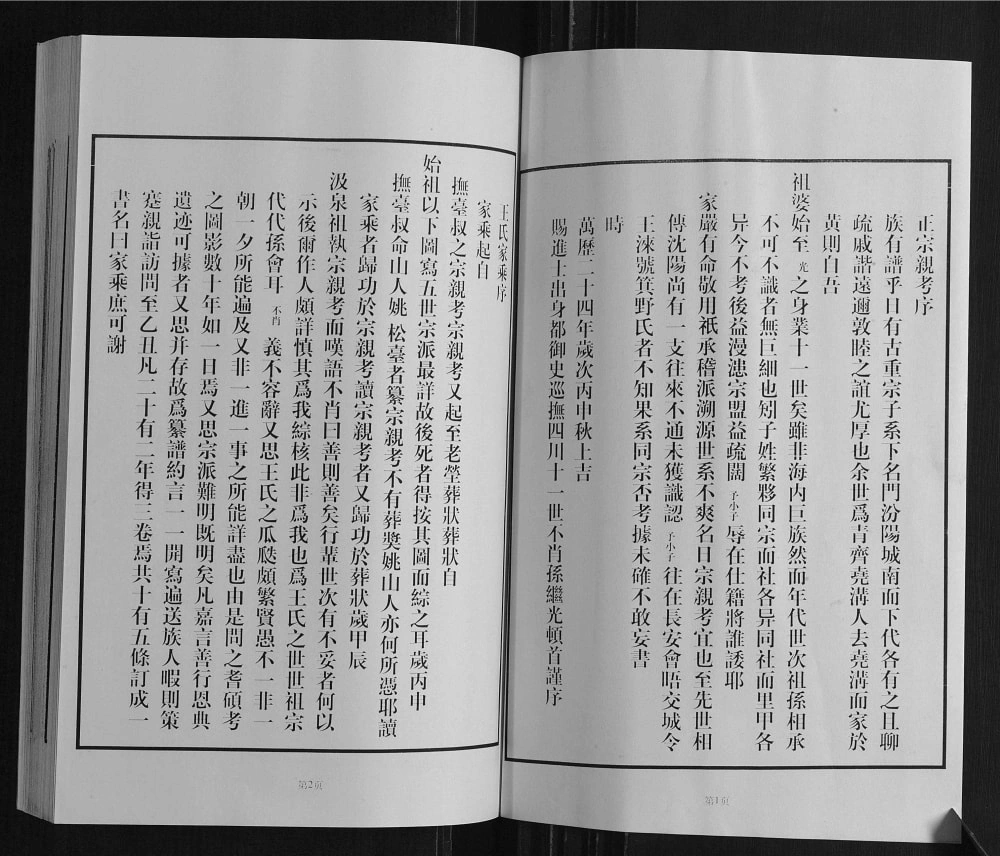 正宗親考序
族有譜乎曰有古重宗子系下名門汾陽城南而下代各有之且聊
疏戚諧遠邇敦睦之誼尤厚也余世爲青齊堯溝人去堯溝而家於
黃則自吾
祖婆始至光之身業十一世矣雖非海内巨族然而年代世次祖孫相承
不可不識者無巨細也矧子姓繁夥同宗而社各异同社而里甲各
异今不考後益漫漶宗盟益疏闊予小子辱在仕籍將誰諉耶
家嚴有命敬用祇承稽派溯源世系不爽名曰宗親考宜也至先世相
傳沈陽尚有一支往來不通未獲識認予小子往在長安會晤交城令
王淶號箕野氏者不知果系同宗否考據未確不敢妄書
時
萬歷二十四年歲次丙申秋上吉
賜進士出身都御史巡撫四川十一世不肖孫繼光頓首謹序
第1页
王氏家乘序
家乘起自
撫臺叔之宗親考宗親考又起至老塋葬狀葬狀自
始祖以下圖寫五世宗派最詳故後死者得按其圖而綜之耳歲丙申
撫臺叔命山人姚松臺者纂宗親考不有葬獎姚山人亦何所憑耶讀
家乘者歸功於宗親考讀宗親考者又歸功於葬狀歲甲辰
汲泉祖執宗親考而嘆語不肖曰善則善矣行輩世次有不妥者何以
示後爾作人頗詳慎其爲我綜核此非爲我也爲王氏之世世祖宗
代代孫會耳不肖義不容辭又思王氏之瓜瓞頗繁賢愚不一非一
朝一夕所能遍及又非一進一事之所能詳盡也由是問之耆碩考
之圖影數十年如一日焉又思宗派難明既明矣凡嘉言善行恩典
遺迹可據者又思并存故爲纂譜約言一一開寫遍送族人暇則策
蹇親詣訪問至乙丑凡二十有二年得三卷焉共十有五條訂成一
書名曰家乘庶可謝
第2页